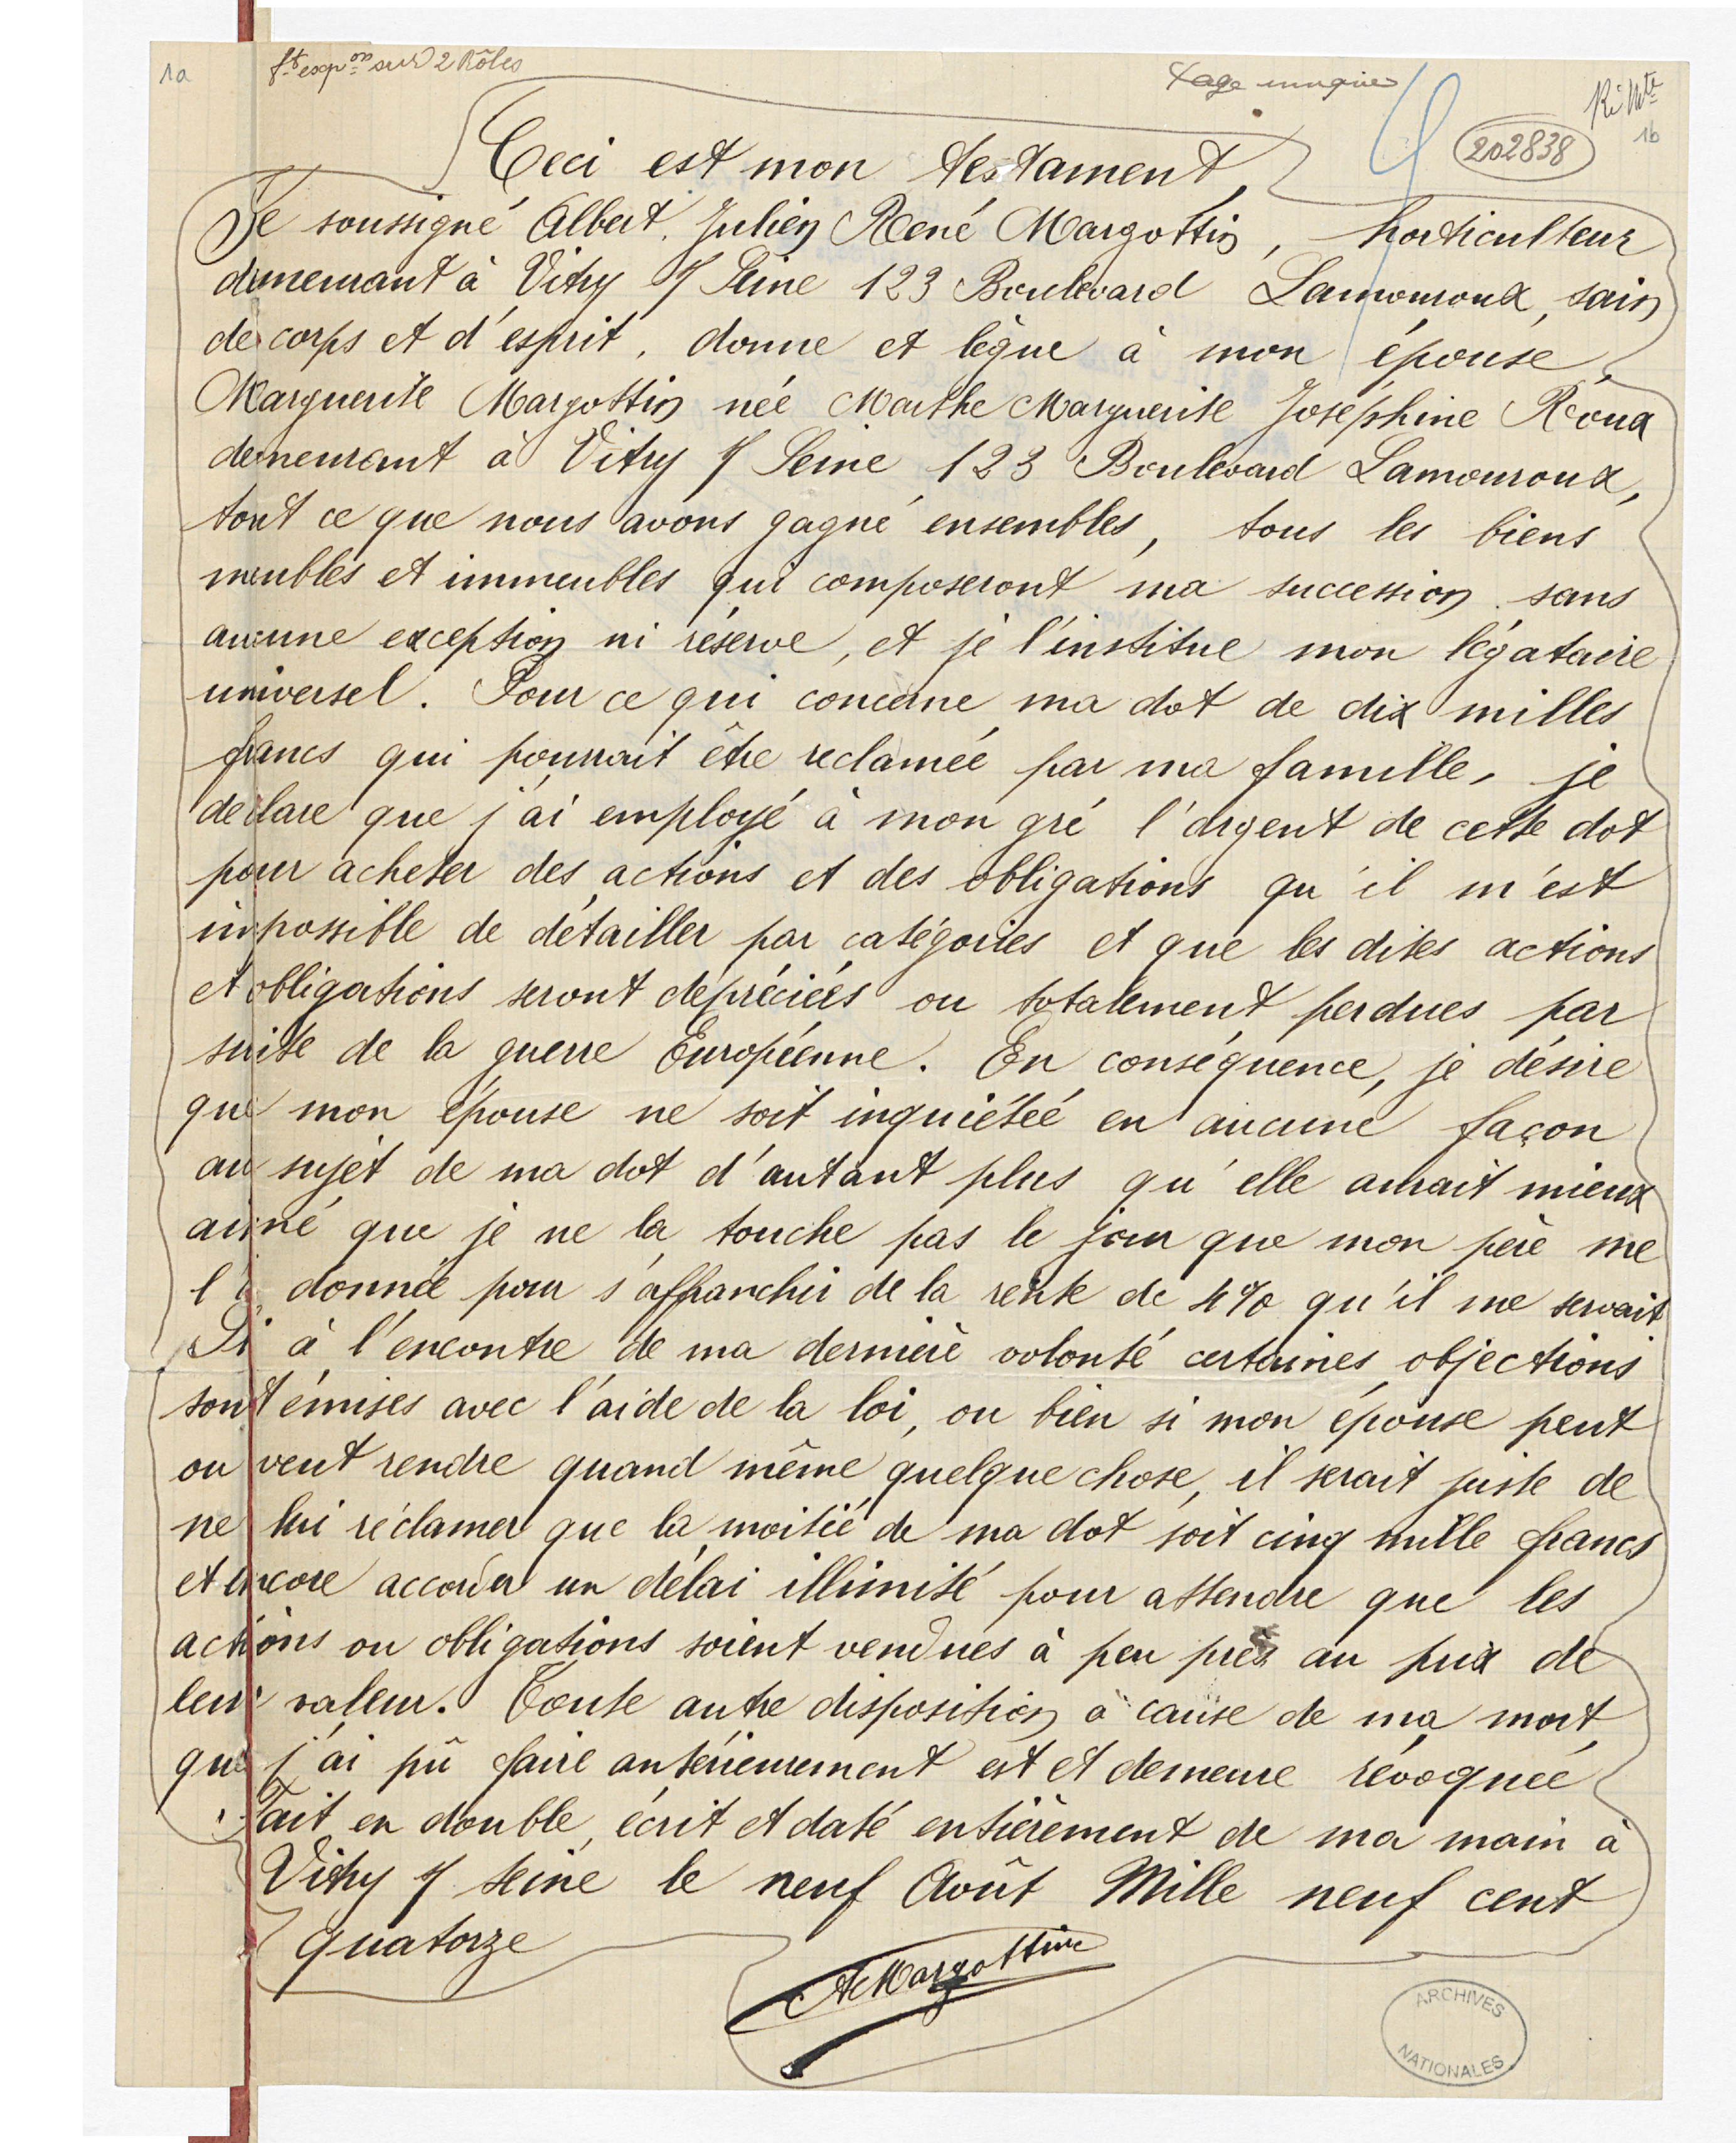 1a
fte expon sur 2 Rôles
Page unique
202838
1b
Ceci est mon testament,
Je soussigné Albert, Julien René Margottin, horticulteur
demeurant à Vitry s/ Seine 123 Boulevard Lamouroux, sain
de corps et d'esprit, donne et lègue à mon épouse,
Marguerite Margottin née Marthe Marguerite Joséphine Roux
demeurant à Vitry s/ Seine 123 Boulevard Lamouroux,
tout ce que nous avons gagné ensembles, tous les biens
meubles et immeubles qui composeront ma succession sans
aucune exception ni réserve, et je l'institue mon légataire
universel. Pour ce qui concerne ma dot de dix milles
francs qui pourrait être reclamée par ma famille, je
declare que j'ai employé à mon gré l'argent de cette dot
pour acheter des actions et des obligations qu'il m'est
impossible de détailler par catégories et que les dites actions
et obligations seront dépréciées ou totalement perdues par
suite de la guerre Européenne. En conséquence, je désire
que mon épouse ne soit inquiétée en aucune façon
au sujet de ma dot d'autant plus qu'elle aurait mieux
aimé que je ne la touche pas le jour que mon père me
l'a donnée pour s'affranchir de la rente de 4% qu'il me servait
Si à l'encontre de ma dernière volonté certaines objections
sont émises avec l'aide de la loi, ou bien si mon épouse peut
ou veut rendre quand même quelque chose, il serait juste de
ne lui réclamer que la moitié de ma dot soit cinq mille francs
et encore accorder un délai illimité pour attendre que les
actions ou obligations soient vendues à peu près au prix de
leur valeur. Toute autre disposition à cause de ma mort,
que j'ai pû faire antérieurement est et demeure révoquée
Fait en double, écrit et daté entièrement de ma main à
Vitry s/ Seine le neuf Août Mille neuf cent
quatorze
AMargottin
ARCHIVES
NATIONALES